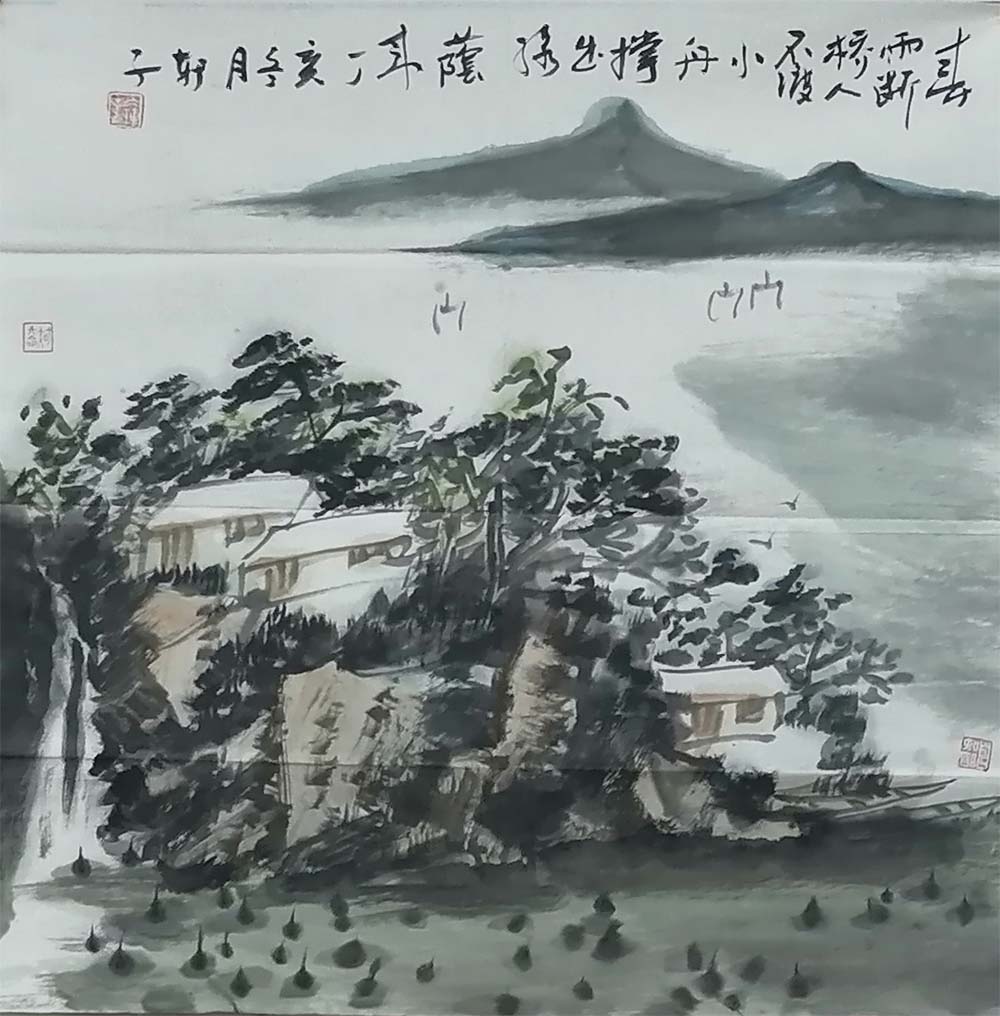 春雨断桥人不渡小舟撑出绿蔭来丁亥冬月